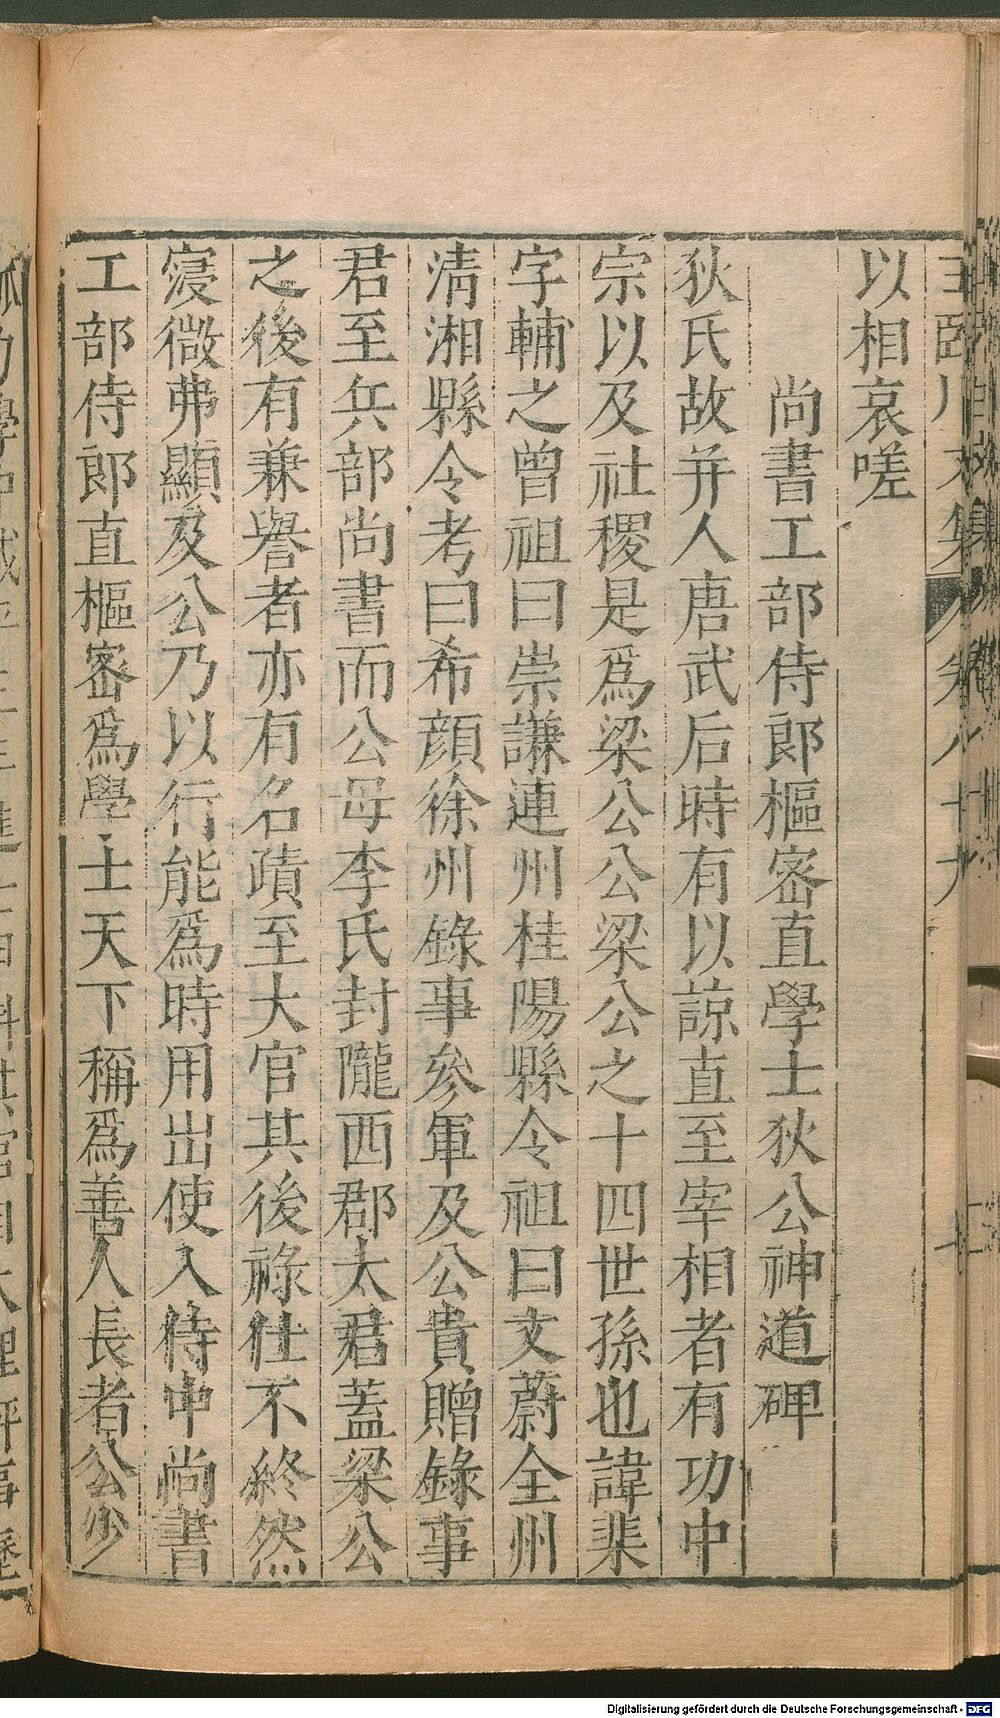 以相哀嗟
尚書工部侍郎樞密直學士狄公神道碑
狄氏故并人唐武后時有以諒直至宰相者有功中
宗以及社稷是爲梁公公梁公之十四世孫也諱棐
字輔之曾祖曰崇謙連州桂陽縣令祖曰文蔚全州
清湘縣令考曰希顔徐州錄事參軍及公貴贈錄事
君至兵部尚書而公母李氏封隴西郡太君蓋梁公
之後有兼謩者亦有名蹟至大官其後祿仕不終然
寖微弗顯及公乃以行能爲時用出使入侍中尚書
工部侍郎直樞密爲學士天下稱爲善人長者公少
Digitalisierung gefördert durch die Deutsche Forschungsgemeinschaft - DFG